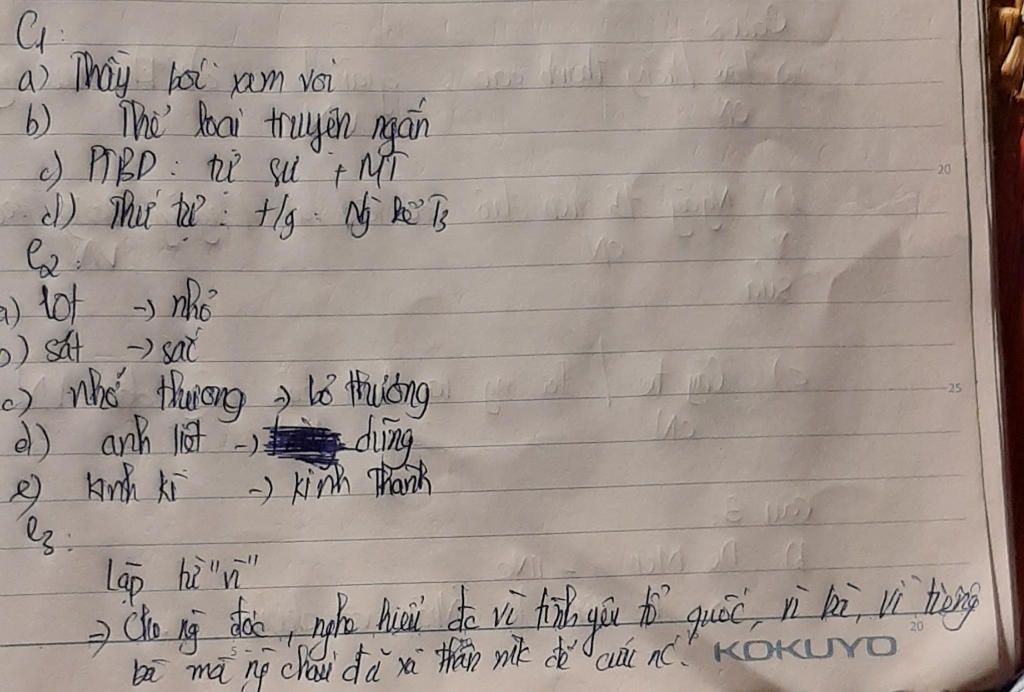 C1:
a) Thầy bói xem voi
b) Thể loại truyện ngắn
c) PTBD: tự sự + MT
20
d) Thứ tự: t/g: Ng kể T3
C2:
a) lót -> nhỏ
b) sắt -> sắc
25
c) nhớ thương -> bỏ thương
d) anh liệt -> dũng
e) kinh kì -> kinh thành
C3:
Lặp từ "vì"
=> Cho ng đọc, nghe hiểu đc vì tình yêu tổ quốc, vì bà, vì tiếng
bà mà ng cháu đã xả thân mik để cứu nc.
KOKUYO
20